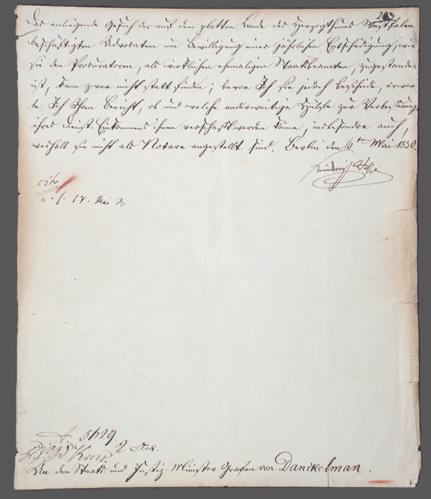 Das anliegende Gesuch der auf dem platten Lande des Herzogthums Westfalen
beschäftigten Advocaten um Bewilligung einer jährlichen Entschädigung, wie
sie den Procuratoren, als wirklichen ehemaligen Staatsbeamten, zugestanden
ist, kann zwar nicht statt finden; bevor Ich sie jedoch bescheide, erwar-
te Ich Ihren Bericht, ob und welche anderweitige Hülfe zur Verbesserung
ihres Dienst-Einkommens ihnen verschafft werden könne, insbesondere auch,
weshalb sie nicht als Notare angestellt sind. Berlin den 6ten Mai 1830.
Friedrich Wilhelm
cito
17. Mai
5629
2
An den Staats und Justiz Minister Grafen von Danckelman.